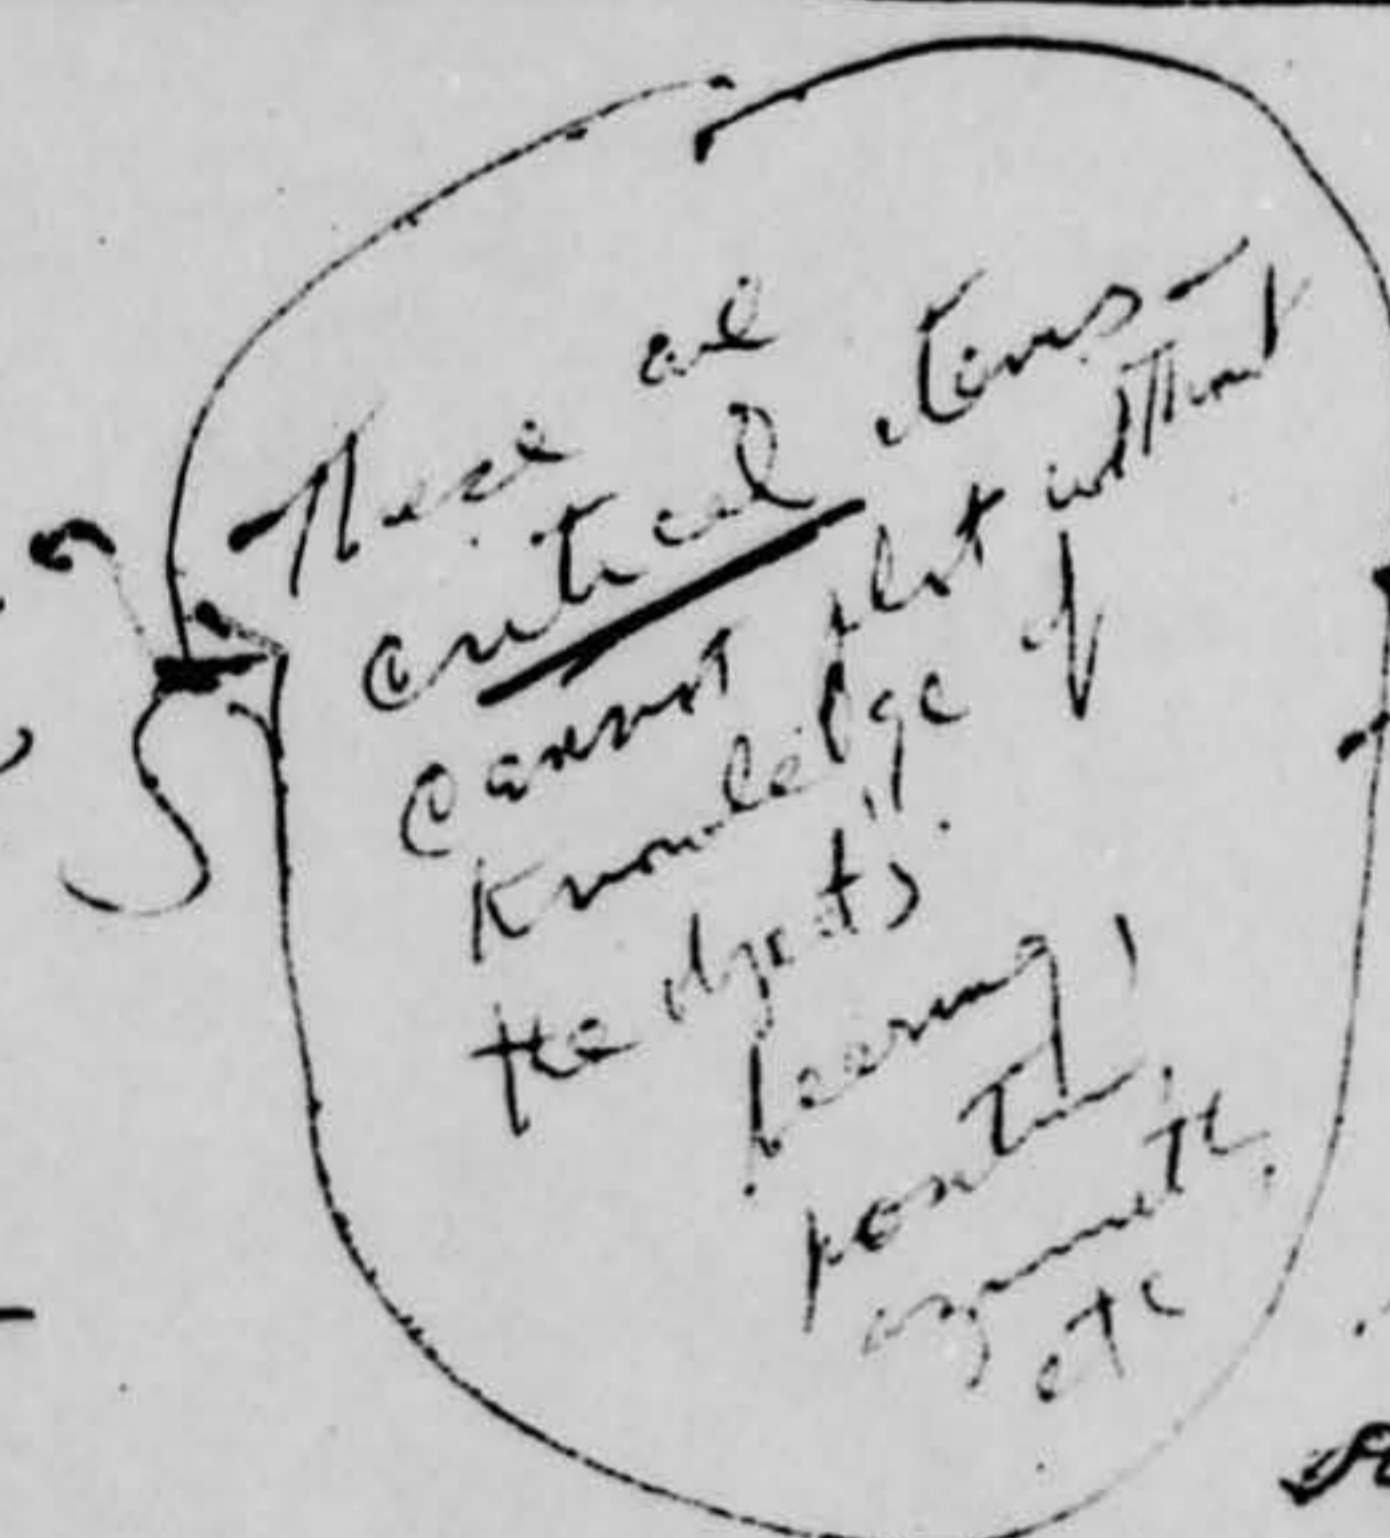 These are
critical items -
cannot plot without
knowledge of
the objects'
bearing,
position,
azimuth,
etc